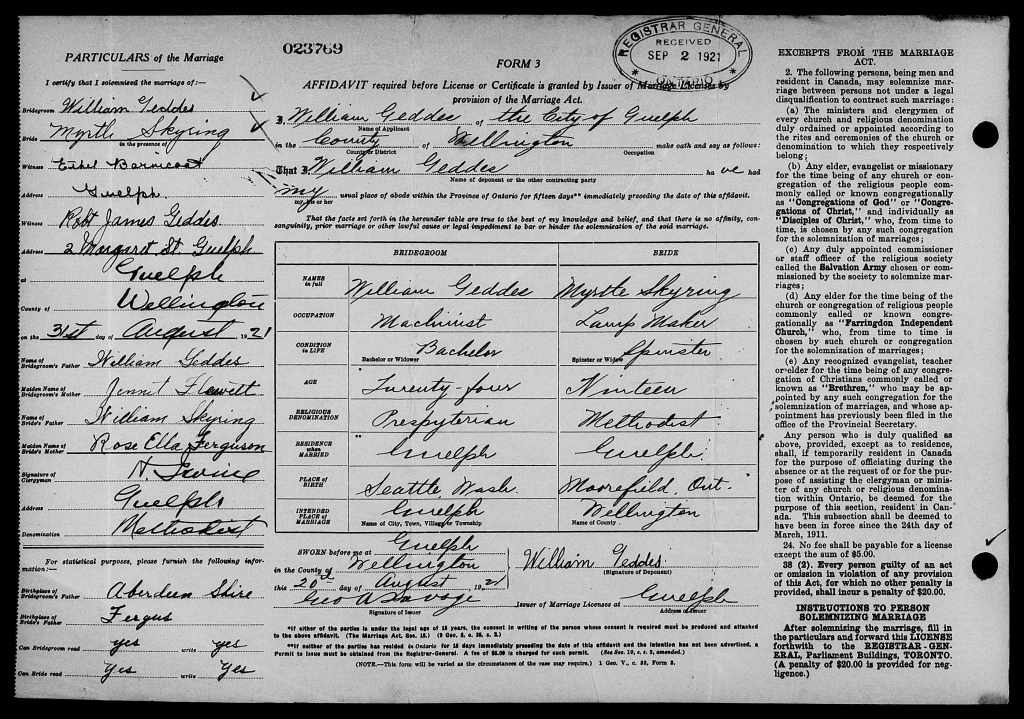 PARTICULARS of the Marriage
I certify that I solemnized the marriage of:—
Bridegroom William Geddes
Bride Myrtle Skyring
in the presence of
Witness Ethel Barnicoat
Address Guelph.
Witness Robt James Geddes
Address 2 Margaret St. Guelph
at Guelph
County of Wellington
on the 31st day of August 1921
Name of Bridegroom's Father William Geddes
Maiden Name of Bridegroom's Mother Flewitt
Name of Bride's Father William Skyring
Maiden Name of Bride's Mother Rose Ella Ferguson
Signature of Clergyman Irvine
Address Guelph
Denomination Methodist
For statistical purposes, please furnish the following information:—
Birthplace of Bridegroom's Father Aberdeen Shire
Birthplace of Bride's Father Fergus
Can Bridegroom read yes write yes
Can Bride read Yes write Yes
023769
REGISTRAR GENERAL
RECEIVED
SEP 2 1921
ONTARIO
FORM 3
AFFIDAVIT required before License or Certificate is granted by Issuer of Marriage Licenses by
provision of the Marriage Act.
I, William Geddes of the City of Guelph
Name of Applicant
in the County of Wellington make oath and say as follows:
County or District Occupation
That I William Geddes ha ve had
Name of deponent or the other contracting party
my usual place of abode within the Province of Ontario for fifteen days** immediately preceding the date of this affidavit.
my, his or her
That the facts set forth in the hereunder table are true to the best of my knowledge and belief, and that there is no affinity, con-
sanguinity, prior marriage or other lawful cause or legal impediment to bar or hinder the solemnization of the said marriage.
BRIDEGROOM BRIDE
NAMES in full William Geddes Myrtle Skyring
OCCUPATION Machinist Lamp Maker
CONDITION in LIFE Bachelor Spinster
Bachelor or Widower Spinster or Widow
AGE Twenty-four Ninteen
RELIGIOUS DENOMINATION Presbyterian Methodist
RESIDENCE when MARRIED Guelph Guelph.
PLACE OF BIRTH Seattle, Wash. Moorefield, Ont.
INTENDED PLACE of MARRIAGE Guelph Wellington
Name of City, Town, Village or Township Name of County
SWORN before me at Guelph
in the County of Wellington William Geddes
(Signature of Deponent)
this 20th day of August 1921
Geo A Savage Issuer of Marriage Licenses at Guelph
Signature of Issuer Address of Issuer
*If either of the parties is under the legal age of 18 years, the consent in writing of the person whose consent is required must be produced and attached
to the above affidavit. (The Marriage Act, Sec. 15.) (9 Geo. 5, c. 35, s. 2.)
**If neither of the parties has resided in Ontario for 15 days immediately preceding the date of this affidavit and the intention has not been advertised, a
Permit to issue must be obtained from the Registrar-General. A fee of $5.00 is charged for such permit. (See Sec. 19, s.s. 3, amended.)
(NOTE.—This form will be varied as the circumstances of the case may require.) 1 Geo. V., c. 32, Form 3.
EXCERPTS FROM THE MARRIAGE
ACT.
2. The following persons, being men and
resident in Canada, may solemnize mar-
riage between persons not under a legal
disqualification to contract such marriage:
(a) The ministers and clergymen of
every church and religious denomination
duly ordained or appointed according to
the rites and ceremonies of the church or
denomination to which they respectively
belong;
(b) Any elder, evangelist or missionary
for the time being of any church or con-
gregation of the religious people com-
monly called or known congregationally
as "Congregations of God" or "Congre-
gations of Christ," and individually as
"Disciples of Christ," who, from time to
time, is chosen by any such congregation
for the solemnization of marriages;
(c) Any duly appointed commissioner
or staff officer of the religious society
called the Salvation Army chosen or com-
missioned by the society to solemnize mar-
riages;
(d) Any elder for the time being of the
church or congregation of religious people
commonly called or known congre-
gationally as "Farringdon Independent
Church," who, from time to time is
chosen by such church or congregation
for the solemnization of marriages;
(e) Any recognized evangelist, teacher
or elder for the time being of any congre-
gation of Christians commonly called or
known as "Brethren," who may be ap-
pointed by any such congregation for the
solemnization of marriages, and whose ap-
pointment has previously been filed in the
office of the Provincial Secretary.
Any person who is duly qualified as
above, provided, except as to residence,
shall, if temporarily resident in Canada
for the purpose of officiating during the
absence or at the request of or for the pur-
pose of assisting the clergyman or minis-
ter of any church or religious denomina-
tion within Ontario, be deemed for the
purpose of this section, resident in Can-
ada. This subsection shall be deemed to
have been in force since the 24th day of
March, 1911.
24. No fee shall be payable for a license
except the sum of $5.00.
38 (2). Every person guilty of an act
or omission in violation of any provision
of this Act, for which no other penalty is
provided, shall incur a penalty of $20.00.
INSTRUCTIONS TO PERSON
SOLEMNIZING MARRIAGE
After solemnizing the marriage, fill in
the particulars and forward this LICENSE
forthwith to the REGISTRAR-GEN-
ERAL, Parliament Buildings, TORONTO.
(A penalty of $20.00 is provided for neg-
ligence.)